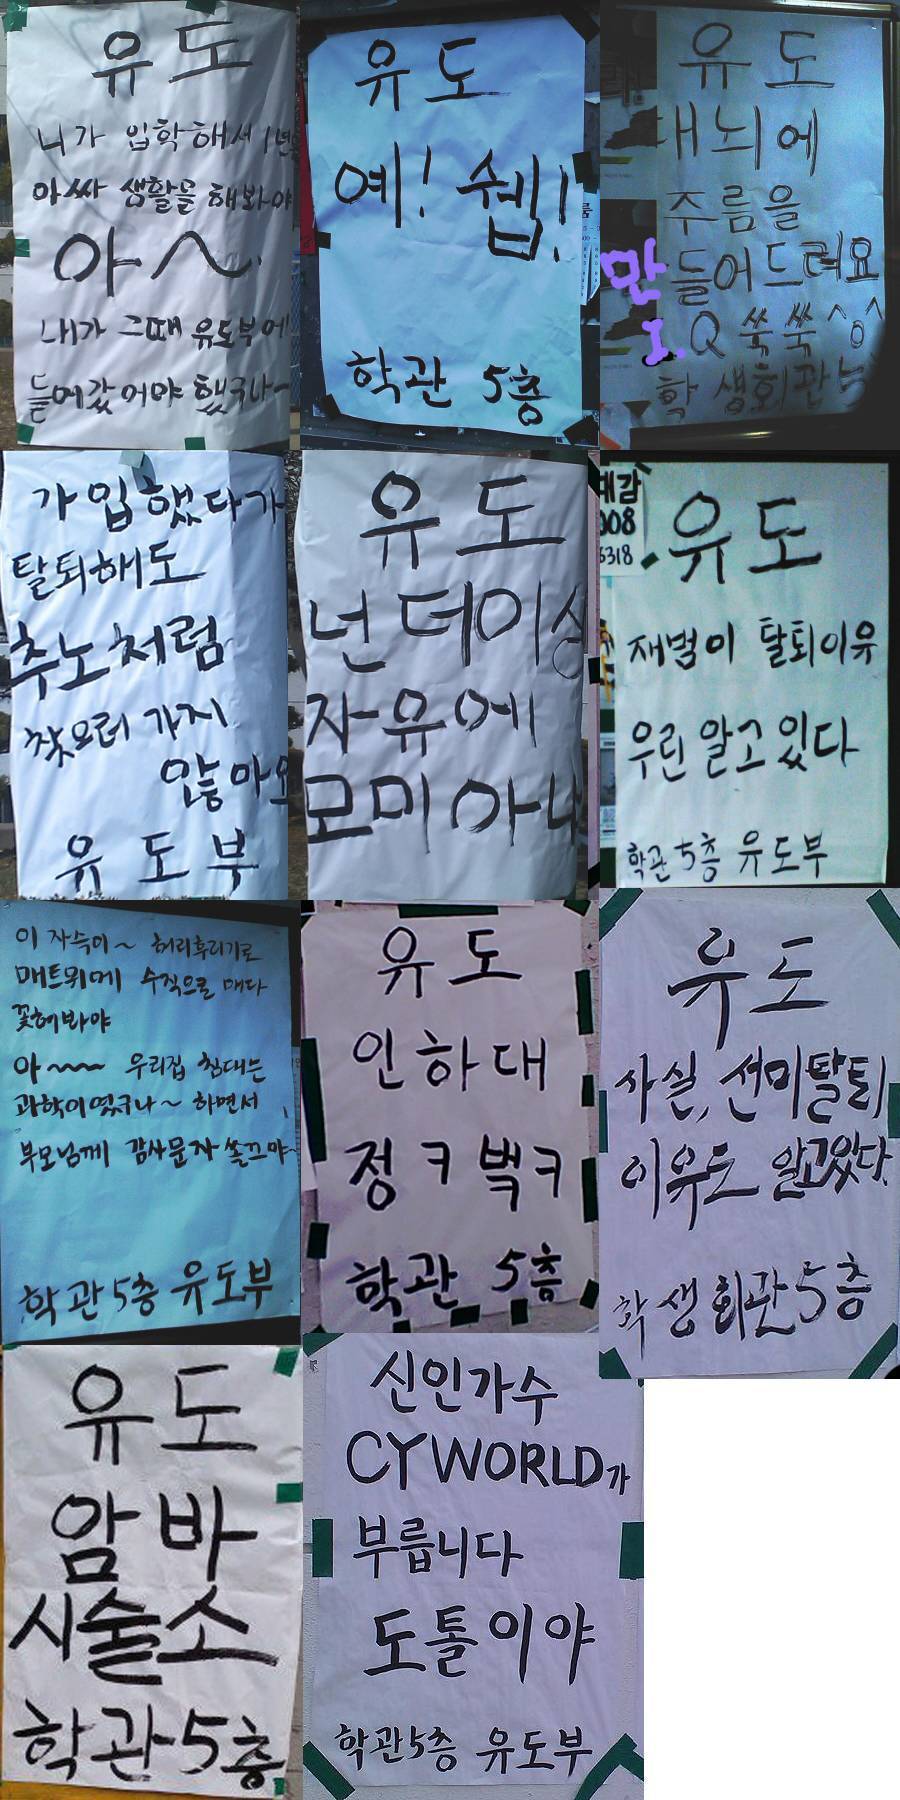 유도
니가 입학해서 1년
아싸 생활을 해봐야
아~
내가 그때 유도부에
들어갔어야 했구나~
유도
예! 쉡!
학관 5층
유도
대뇌에
주름을
만들어드려요
I.Q 쑥쑥 ^o^
학생회관 5
가입했다가
탈퇴해도
추노처럼
찾으러 가지
않아요
유도부
유도
넌 더이상
자유에
모미 아냐
예감
008
6318
유도
재범이 탈퇴이유
우린 알고있다
학관 5층 유도부
이 자슥이~ 허리후리기로
매트위에 수직으로 매다
꽂혀봐야
아~~~ 우리집 침대는
과학이였구나~ 하면서
부모님께 감사문자 쏠끄야~
학관 5층 유도부
유도
인하대
정ㅋ벅ㅋ
학관 5층
유도
사실, 선미탈퇴
이유도 알고있다.
학생회관 5층
유도
암바
시술소
학관 5층
신인가수
CYWORLD가
부릅니다
도톨이야
학관5층 유도부